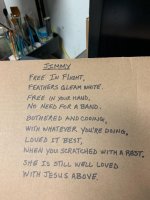 JEMMY
FREE IN FLIGHT,
FEATHERS GLEAM WHITE.
FREE IN YOUR HAND,
NO NEED FOR A BAND.
BOTHERED AND COOING,
WITH WHATEVER YOU'RE DOING,
LOVED IT BEST,
WHEN YOU SCRATCHED WITH A REST.
SHE IS STILL WELL LOVED
WITH JESUS ABOVE.